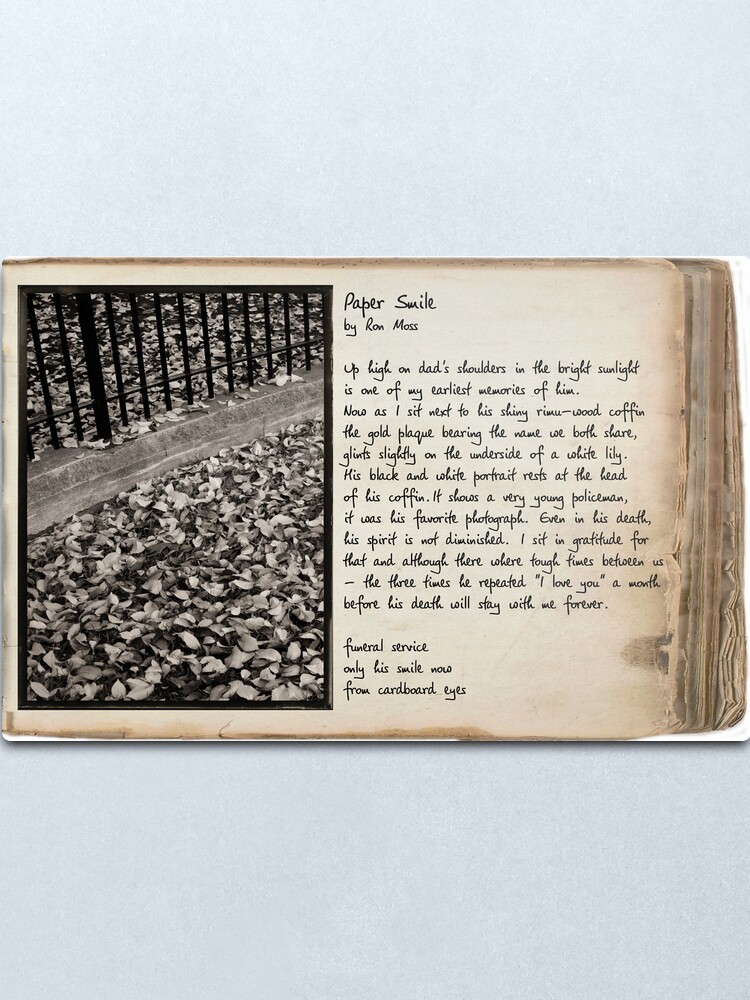 Paper Smile
by Ron Moss
Up high on dad's shoulders in the bright sunlight
is one of my earliest memories of him.
Now as I sit next to his shiny rimu-wood coffin
the gold plaque bearing the name we both share,
glints slightly on the underside of a white lily.
His black and white portrait rests at the head
of his coffin. It shows a very young policeman,
it was his favorite photograph. Even in his death,
his spirit is not diminished. I sit in gratitude for
that and although there where tough times between us
- the three times he repeated "I love you" a month
before his death will stay with me forever.
funeral service
only his smile now
from cardboard eyes